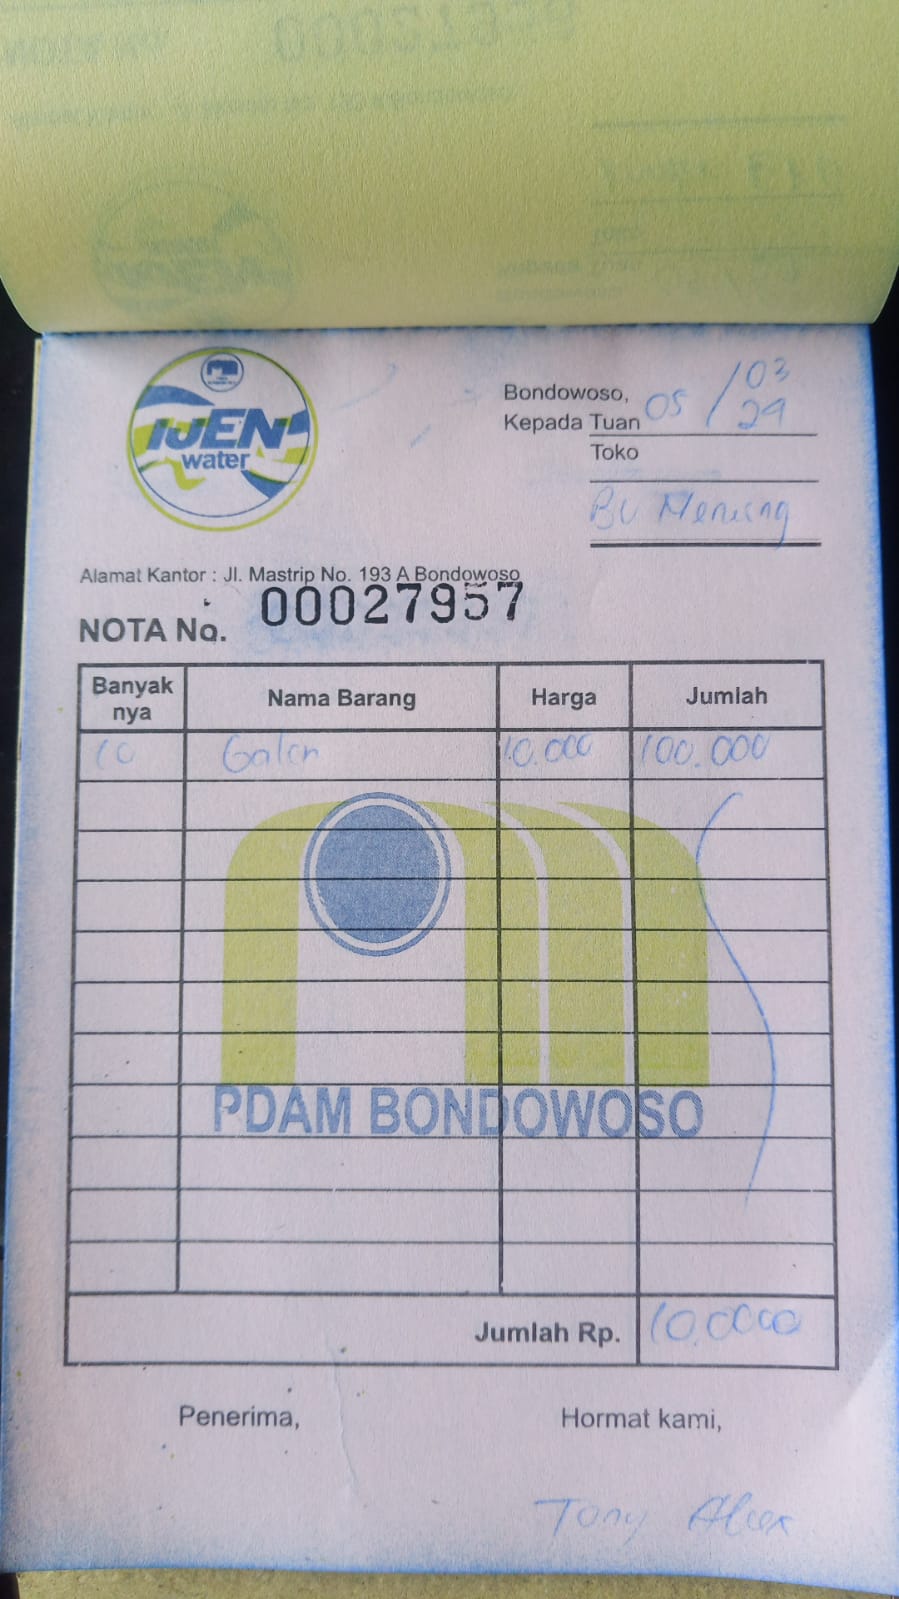 IJEN
water
Bondowoso, 05/03
Kepada Tuan 24
Toko
Bu Menung
Alamat Kantor : Jl. Mastrip No. 193 A Bondowoso
NOTA No. 00027957
Banyak nya Nama Barang Harga Jumlah
10 Galon 10.000 100.000
PDAM BONDOWOSO
Jumlah Rp. 10.0000
Penerima, Hormat kami,
Tony